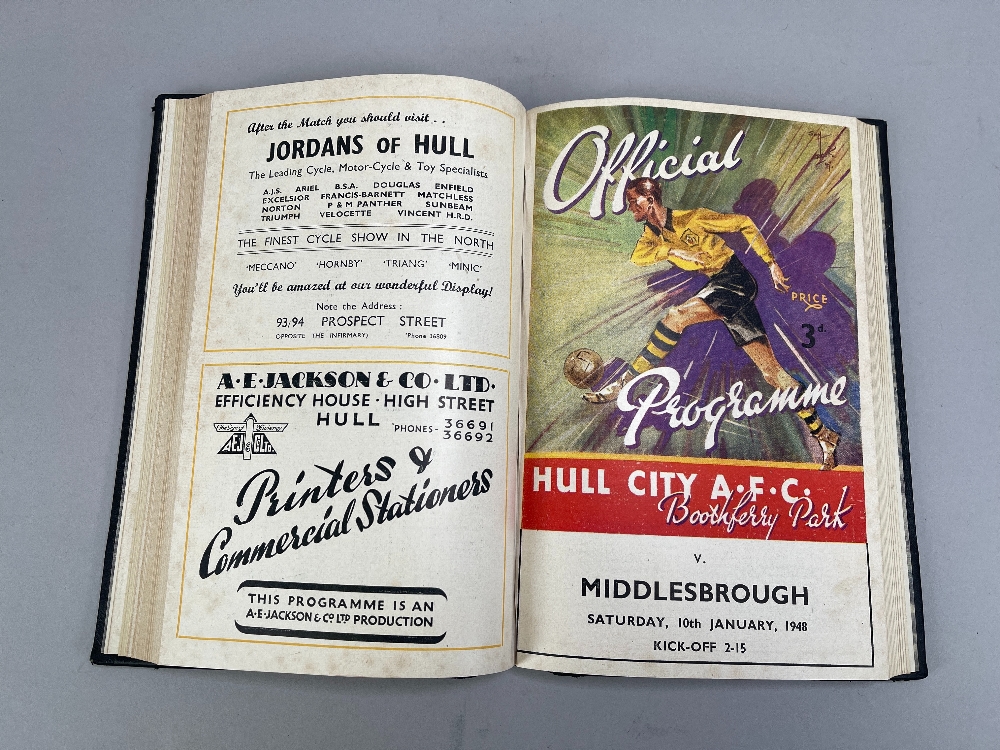 After the Match you should visit . .
JORDANS OF HULL
The Leading Cycle, Motor-Cycle & Toy Specialists
A.J.S. ARIEL B.S.A. DOUGLAS ENFIELD
EXCELSIOR FRANCIS-BARNETT MATCHLESS
NORTON P & M PANTHER SUNBEAM
TRIUMPH VELOCETTE VINCENT H.R.D.
THE FINEST CYCLE SHOW IN THE NORTH
'MECCANO' 'HORNBY' 'TRIANG' 'MINIC'
You'll be amazed at our wonderful Display!
Note the Address :
93/94 PROSPECT STREET
OPPOSITE THE INFIRMARY) 'Phone 16809
A·E·JACKSON & CO·LTD·
EFFICIENCY HOUSE · HIGH STREET
HULL 'PHONES- 36691
36692
AEJ & CO LTD.
Printers &
Commercial Stationers
THIS PROGRAMME IS AN
A·E·JACKSON & CO LTD PRODUCTION
Official
PRICE
3d.
Programme
HULL CITY A·F·C·
Boothferry Park
v.
MIDDLESBROUGH
SATURDAY, 10th JANUARY, 1948
KICK-OFF 2-15